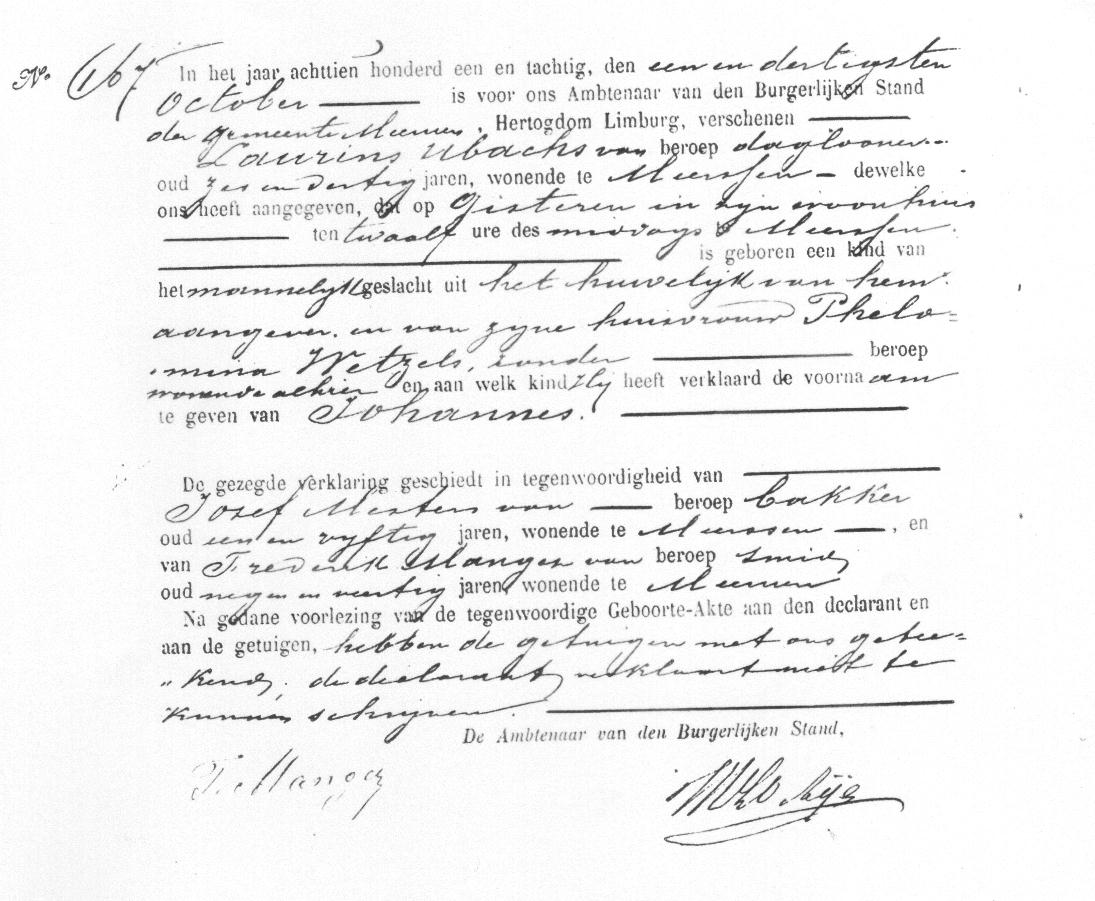 No 167 In het jaar achttien honderd een en tachtig, den een en dertigsten
October is voor ons Ambtenaar van den Burgerlijken Stand
der gemeente Meerssen, Hertogdom Limburg, verschenen
Laurins Ubachs van beroep daglooner
oud zes en dertig jaren, wonende te Meerssen dewelke
ons heeft aangegeven, dat op Gisteren in zijn woonhuis
ten twaalf ure des middags te Meerssen.
is geboren een kind van
het mannelijk geslacht uit het huwelijk van hem
aangever. en van zyne huisvrouw Philo=
mina Wetzels, zonder beroep
wonende alhier en aan welk kind hij heeft verklaard de voornaam
te geven van Johannes.
De gezegde verklaring geschiedt in tegenwoordigheid van
Josef van beroep bakker
oud een en vyftig jaren, wonende te Meerssen, en
van Frederik van beroep smid
oud negen en veertig jaren, wonende te Meerssen
Na gedane voorlezing van de tegenwoordige Geboorte-Akte aan den declarant en
aan de getuigen, hebben de getuigen met ons getee=
"kend, de declarant verklaart niet te
kunnen schrijven.
De Ambtenaar van den Burgerlijken Stand,